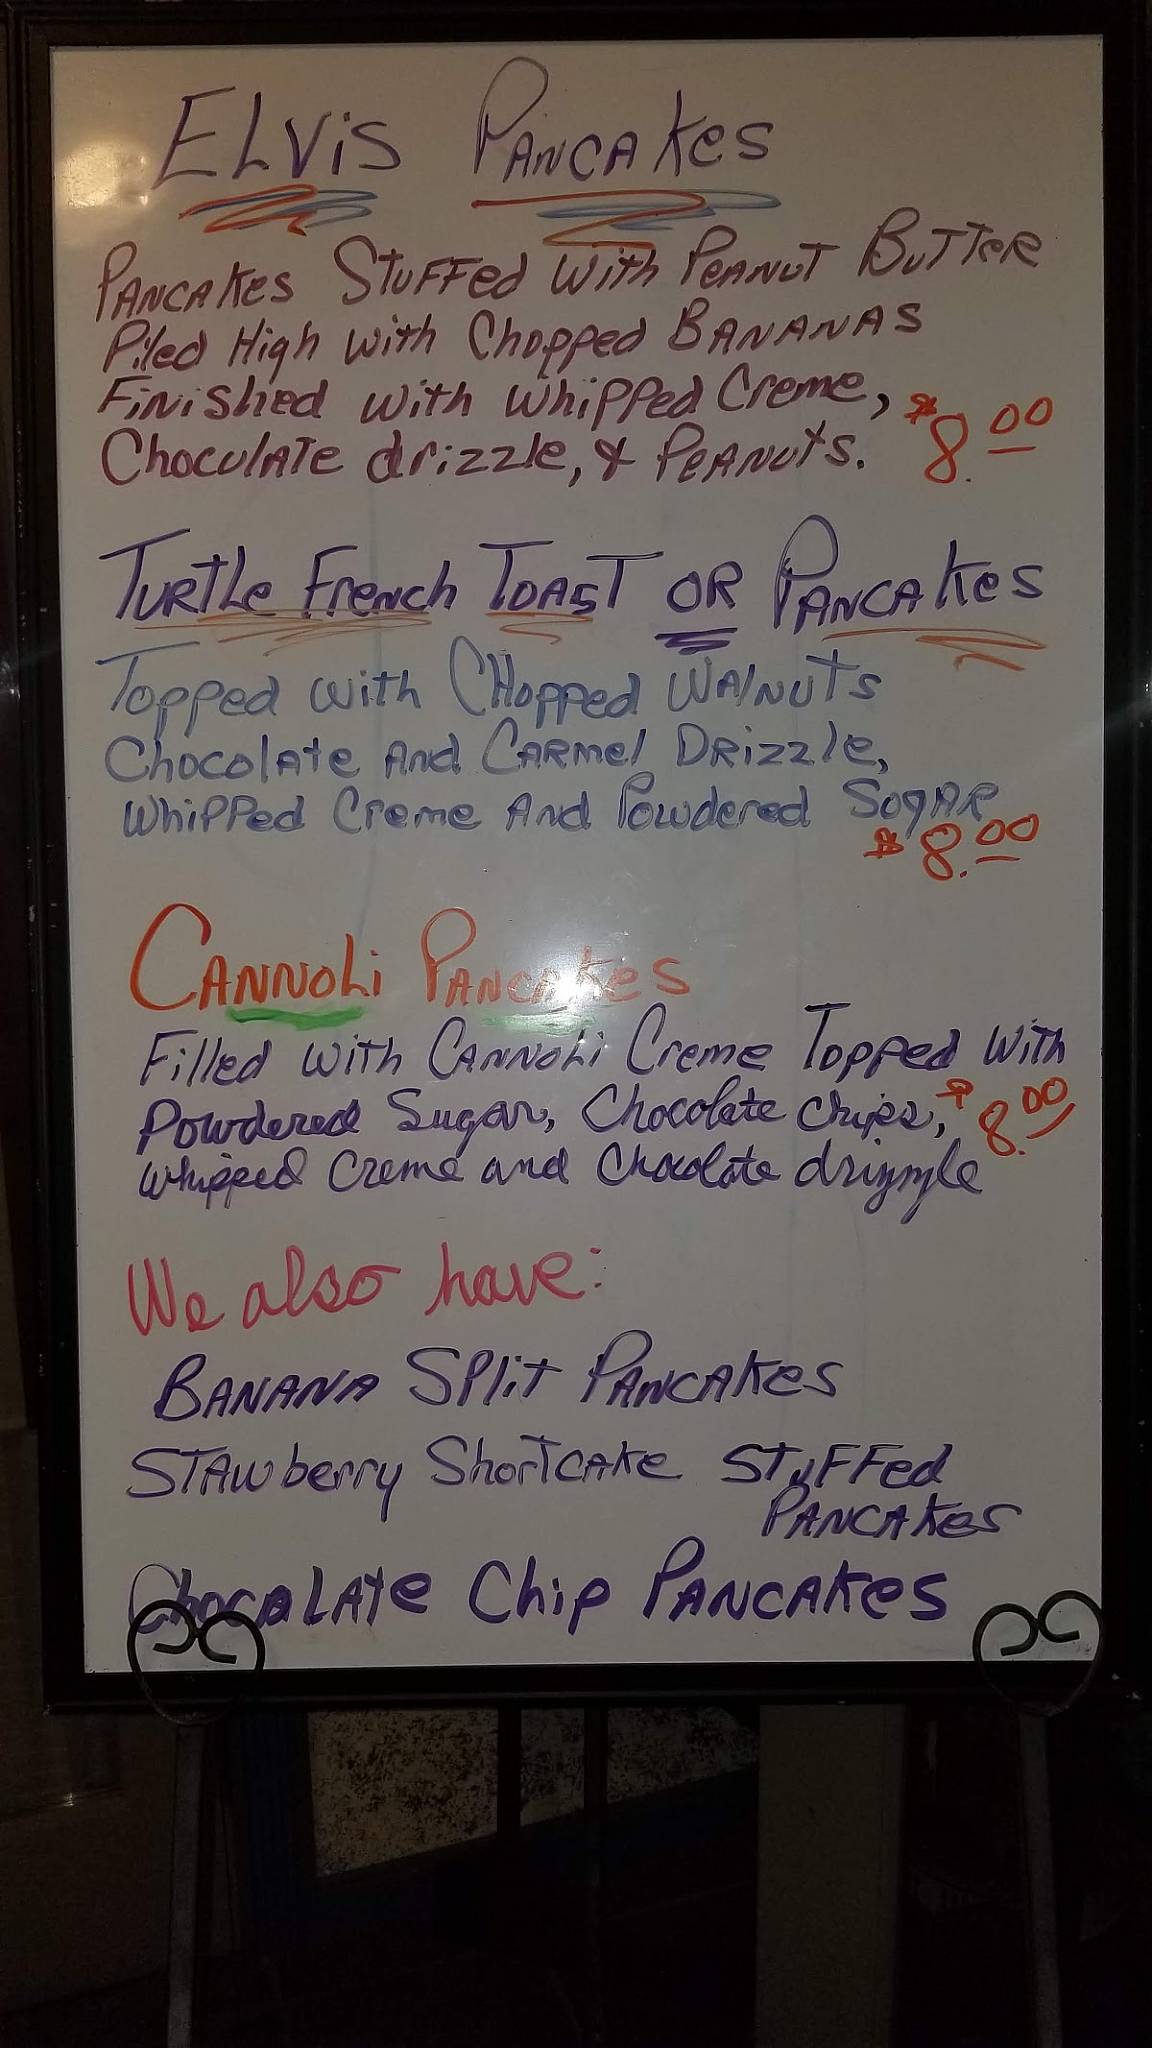 ELViS PANCAKes
PANCAKes STuFFed with PeANUT BuTTeR
Piled High with Chopped BANANAS
FiNished with whipped Creme, $8.00
ChocuLATe drizzle, & PeANuts.
TuRTLe French TOAST OR PANCAKes
Topped with CHopped WAlNuTs
Chocolate ANd CARmel DRizzle,
Whipped Creme ANd Powdered SogAR
$8.00
CANNOLi PANCAKes
Filled with CANNOLi Creme Topped with
Powdered Sugar, Chocolate chips, $8.00
whipped Creme and Chocolate drizzle
We also have:
BANANA SPlit PANCAKes
STAwberry ShorTCAKe STuFFed
PANCAKes
ChocoLATe Chip PANCAKes